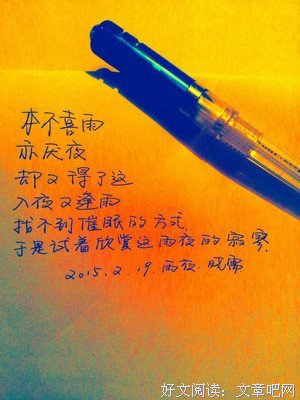 本不喜雨
亦厌夜
却又得了这
入夜又逢雨
找不到催眠的方式
于是试着欣赏这雨夜的寂寥.
2015.2.19.雨夜.晓儒
好文阅读：文章吧网